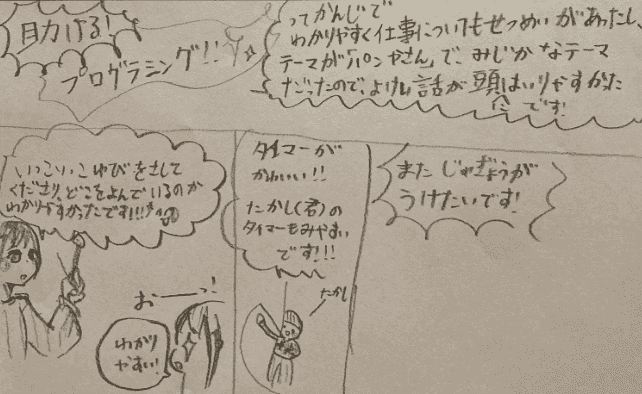 助ける!
プログラミング!!
ってかんじで
わかりやすく仕事についてもせつめいがあったし、
テーマが「パンやさん」で、みじかなテーマ
だったので、よけい話が頭はいりやすかった
に
です!
いっこいっこゆびをさして
くださり、どこをよんでいるのか
わかりやすかったです!!!
おーっ!
わかり
やすい!
タイマーが
かわいい!!
たかし(君)の
タイマーもみやすい
です!!!
たかし
また じゅぎょうが
うけたいです!